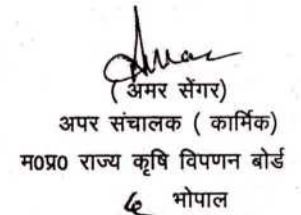 (अमर सेंगर)
अपर संचालक ( कार्मिक)
म0प्र0 राज्य कृषि विपणन बोर्ड
भोपाल